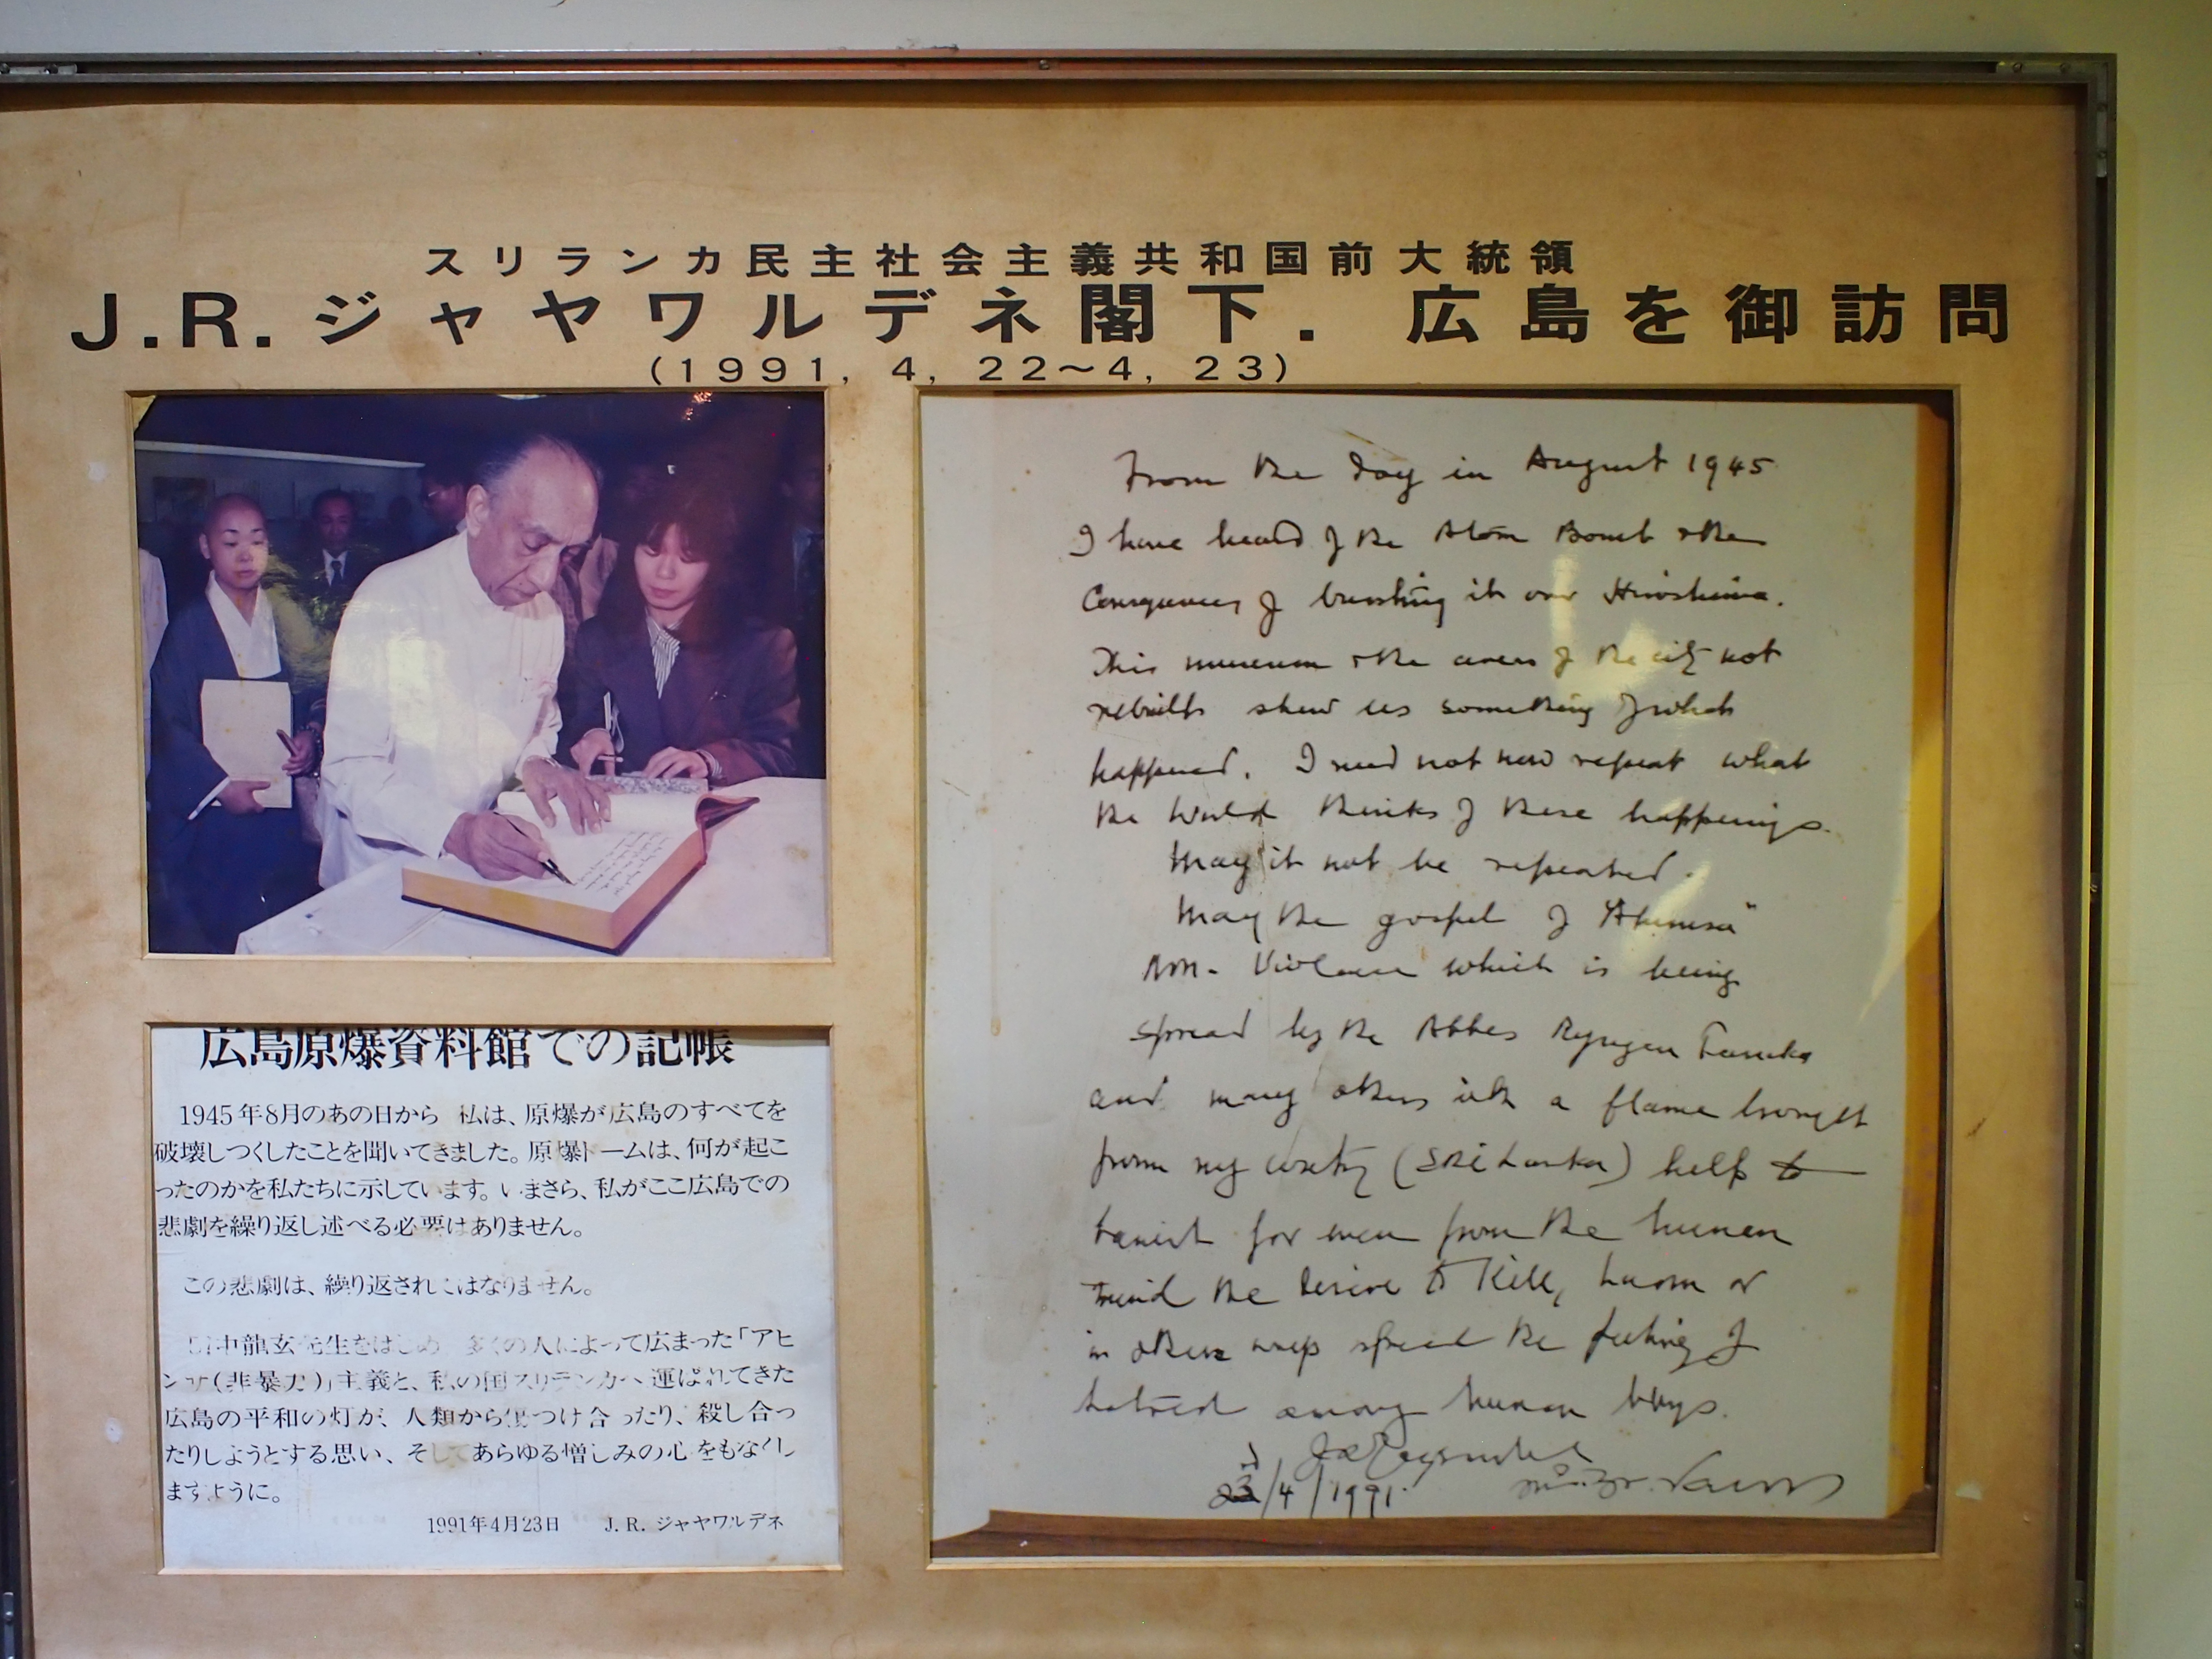 スリランカ民主社会主義共和国前大統領
J.R.ジャヤワルデネ閣下.広島を御訪問
(1991, 4, 22~4, 23)
広島原爆資料館での記帳
1945年8月のあの日から 私は、原爆が広島のすべてを
破壊しつくしたことを聞いてきました。原爆ドームは、何が起こ
ったのかを私たちに示しています。いまさら、私がここ広島での
悲劇を繰り返し述べる必要はありません。
この悲劇は、繰り返されてはなりません。
田中龍玄先生をはじめ 多くの人によって広まった「アヒ
ンサ(非暴力)」主義と、私の国スリランカへ運ばれてきた
広島の平和の灯が、人類から傷つけ合ったり、殺し合っ
たりしようとする思い、そしてあらゆる憎しみの心をもなくし
ますように。
1991年4月23日 J.R. ジャヤワルデネ
From the day in August 1945
I have heard of the Atom Bomb & the
Consequences of bursting it over Hiroshima.
This museum & the areas of the city not
rebuilt show us something of what
happened. I need not now repeat what
the World thinks of these happenings.
May it not be repeated.
May the gospel of "Ahimsa"
Non-Violence which is being
spread by the Abbes Ryugen Tanaka
and many others with a flame brought
from my country (Sri Lanka) help to
banish for ever from the human
mind the desire to Kill, harm or
in other ways spread the feeling of
hatred among human beings.
23/4/1991